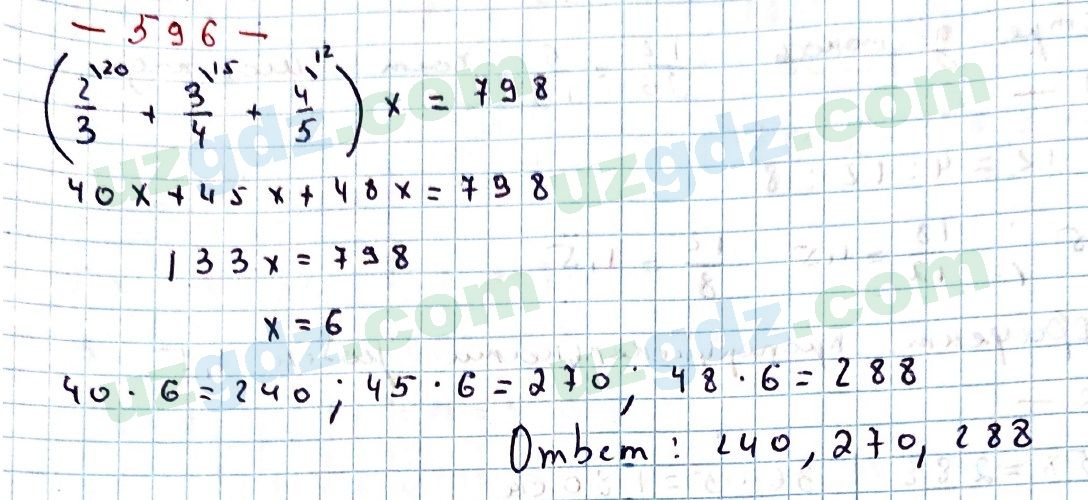 - 596 -
(2/3 \20 + 3/4 \15 + 4/5 \12) x = 798
40x + 45x + 48x = 798
133x = 798
x = 6
40 · 6 = 240; 45 · 6 = 270; 48 · 6 = 288
Ответ: 240, 270, 288
uzgdz.com
uzgdz.com
uzgdz.com
uzgdz.com